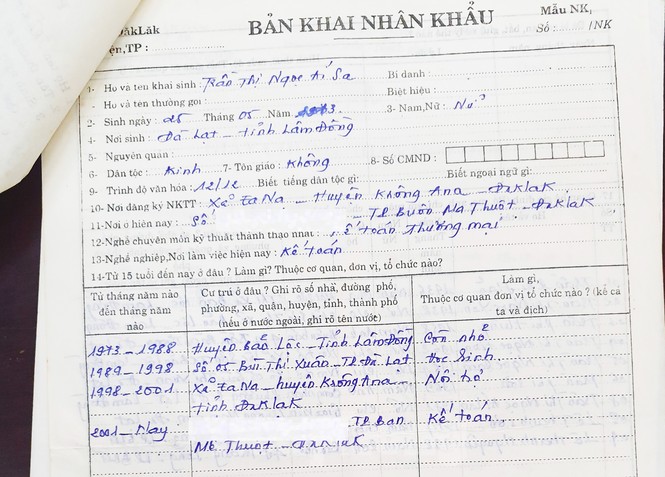 BẢN KHAI NHÂN KHẨU
Mẫu NK,
ĐăkLăk
TP :
Số : /NK
1- Họ và tên khai sinh : Trần Thị Ngọc Ái Sa
Bí danh :
- Họ và tên thường gọi :
Biệt hiệu :
2- Sinh ngày : 25 Tháng 05 Năm 1973
3- Nam,Nữ : Nữ
4- Nơi sinh : Đà Lạt - Tỉnh Lâm Đồng
5- Nguyên quán :
6- Dân tộc : Kinh 7- Tôn giáo : Không 8- Số CMND :
9- Trình độ văn hóa : 12/12 Biết tiếng dân tộc gì: Biết ngoại ngữ gì:
10- Nơi đăng ký NKTT : Xã Ea Na - Huyện Krông Ana - ĐăkLăk
11-Nơi ở hiện nay : Số TP Buôn Ma Thuột - ĐăkLăk
12-Nghề chuyên môn kỹ thuật thành thạo nhất : Kế toán Thương mại
13-Nghề nghiệp,Nơi làm việc hiện nay : Kế toán
14-Từ 15 tuổi đến nay ở đâu ? Làm gì? Thuộc cơ quan, đơn vị, tổ chức nào?
Từ tháng năm nào đến tháng năm nào
Cư trú ở đâu ? Ghi rõ số nhà, đường phố, phường, xã, quận, huyện, tỉnh, thành phố (nếu ở nước ngoài, ghi rõ tên nước)
Làm gì, Thuộc cơ quan đơn vị tổ chức nào ? (kể cả ta và địch)
1973 - 1988 Huyện Bảo Lộc - Tỉnh Lâm Đồng Còn nhỏ
1989 - 1998 Số 05 Bùi Thị Xuân - TP Đà Lạt Học Sinh
1998 - 2001 Xã Ea Na - huyện Krông Ana - Nội trợ
Tỉnh ĐăkLăk
2001 - Nay TP Ban Kế toán
Mê Thuột - ĐăkLăk